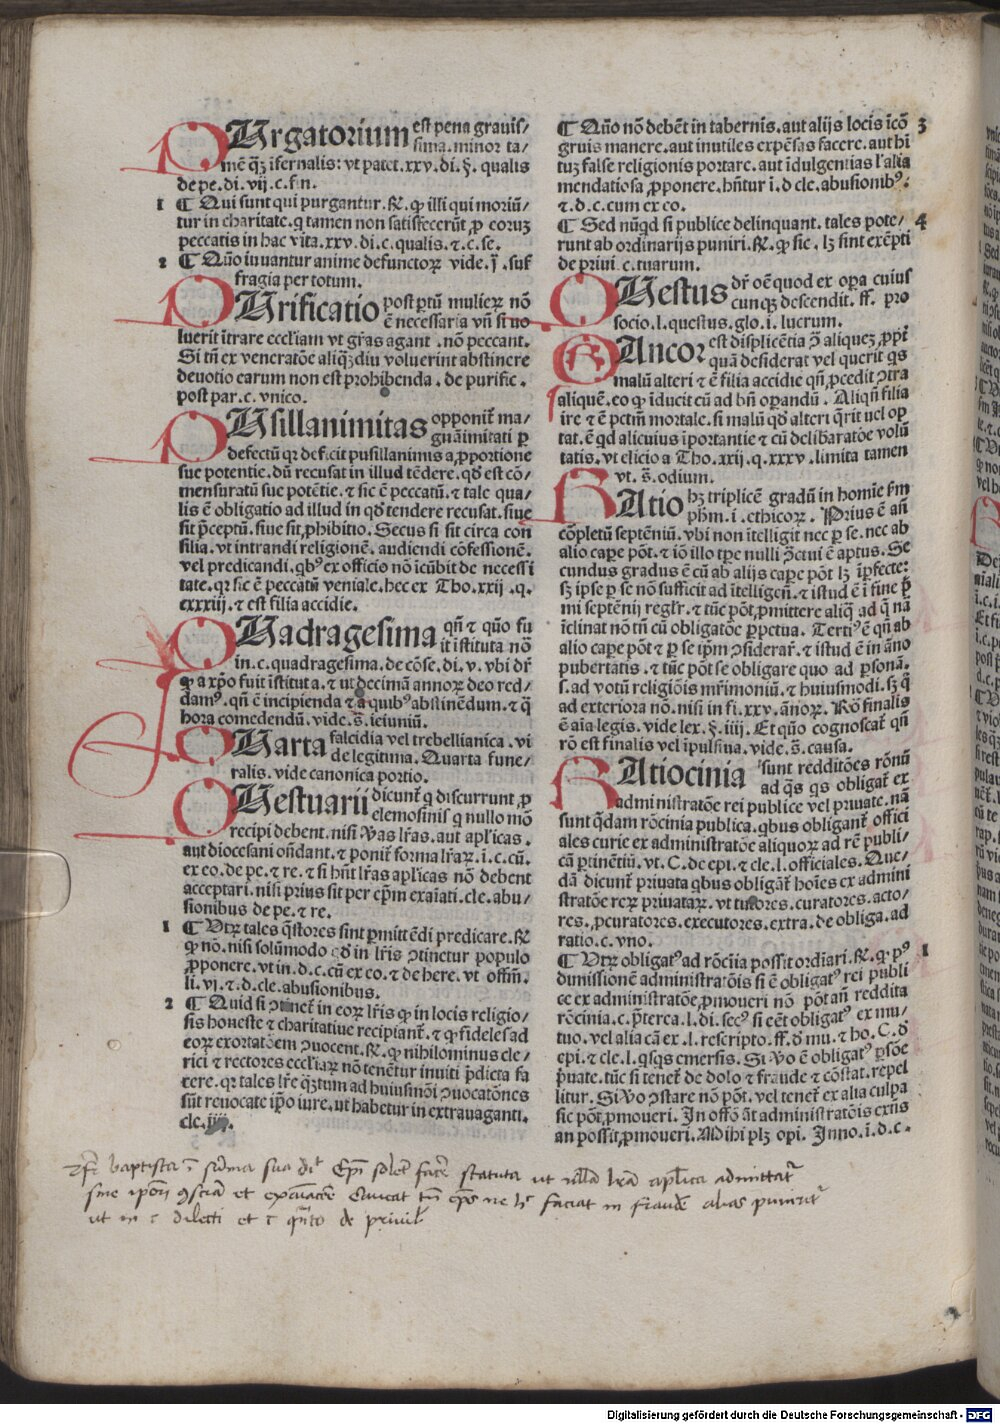 PUrgatorium est pena grauis/
sima. minor ta/
mē q̄ʒ īfernalis: vt patet. xxv. di. §. qualis
de pe. di. vij. c. fin.
1 ¶ Qui sunt qui purgantur. ℟. ꝙ illi qui moriū/
tur in charitate. q tamen non satisfecerūt ꝓ eoruʒ
peccatis in hac vita. xxv. di. c. qualis. ⁊ .c. se.
2 ¶ Qūo iuuantur anime defunctoꝝ vide. j̄. suf
fragia per totum.
PUrificatio post ꝑtū mulieꝝ nō
ē necessaria vn̄ si uo
luerit ītrare eccliam vt gr̄as agant .nō peccant.
Si tn̄ ex veneratōe aliqʒdiu voluerint abstinere
deuotio earum non est prohibenda . de purific .
post par. c. vnico.
PUsillanimitas opponit̄ ma/
gnāimitati ꝑ
defectū qꝛ deficit pusillanimis a ꝓportione
sue potentie. dū recusat in illud tēdere. qd̄ est cō/
mensuratū sue potētie. ⁊ sic ē peccatū. ⁊ tale qua/
lis ē obligatio ad illud in qd̄ tendere recusat. siue
sit p̄ceptū. siue sit ꝓhibitio. Secus si sit circa con
silia. vt intrandi religionē. audiendi cōfessionē.
vel predicandi. qbꝰ ex officio nō icūbit de necessi
tate. qꝛ sic ē peccatū veniale. hec ex Tho. xxij .q.
cxxxiij. ⁊ est filia accidie.
QUadragesima qn̄ ⁊ quō fu
it īstituta nō
in. c. quadragesima. de cōse. di. v. vbi dr̄
ꝙ a xp̄o fuit īstituta. ⁊ ut decimā annoꝝ deo red/
damꝰ. qn̄ ē incipienda ⁊ a quibꝰ abstinēdum. ⁊ q̄
hora comedendū. vide. s̄. ieiuniū.
QUarta falcidia vel trebellianica . vi
de legitima. Quarta fune/
ralis. vide canonica portio.
QUestuarii dicunt̄ q discurrunt ꝓ
elemosinis q nullo mō
recipi debent. nisi ꝟas lr̄as. aut apl'icas .
aut diocesani on̄dant. ⁊ ponit̄ forma lr̄aꝝ. i. c. cū.
ex eo. de pe. ⁊ re. ⁊ si hn̄t lr̄as apl'icas nō debent
acceptari. nisi prius sit per ep̄m exaīati. cle. abu/
sionibus de pe. ⁊ re.
1 ¶ Utꝝ tales q̄stores sint ꝑmittēdi predicare. ℟
ꝙ nō. nisi solūmodo qd̄ in lr̄is ↄtinetur populo
ꝓponere. vt in. d. c. cū ex eo. ⁊ de here. vt offm̄.
li. vj. ⁊ .d. cle. abusionibus.
2 ¶ Quid si ↄtinet̄ in eoꝝ lr̄is ꝙ in locis religio/
sis honeste ⁊ charitatiue recipiant̄. ⁊ ꝙ fideles ad
eoꝝ exortatōem ↄuocent. ℟. ꝙ nihilominus cle/
rici ⁊ rectores eccl'iaꝝ nō tenētur inuiti p̄dicta fa
cere. qꝛ tales lr̄e qʒtum ad huiusmōi ↄuocatōnes
sūt reuocate ip̄o iure. ut habetur in extrauaganti.
cle. iiij.
¶ Qūo nō debēt in tabernis. aut alijs locis īcō 3
gruis manere. aut inutiles expēsas facere. aut hi
tuʒ false religionis portare. aut idulgentias l' alia
mendatiosa ꝓponere. hn̄tur i. d cle. abusionibꝰ:
⁊ .d. c. cum ex eo.
¶ Sed nūqd si publice delinquant. tales pote/ 4
runt ab ordinarijs puniri. ℟. ꝙ sic . lʒ sint exēpti
de priui. c. tuarum.
QUestus dr̄ oē quod ex oꝑa cuius
cunqʒ descendit. ff. pro
socio. l. questus. glo. i. lucrum.
RAncor est displicētia ↄ̄ aliqueʒ ꝓpt̄
quā desiderat vel querit qs
malū alteri ⁊ ē filia accidie qn̄ ꝓcedit ↄtra
aliquē. eo ꝙ īducit cū ad bn̄ oꝑandū . Aliqn̄ filia
ire ⁊ ē pctm̄ mortale. si malū qd̄ alteri q̄rit uel op
tat. ē qd alicuius īportantie ⁊ cū delibaratōe volū
tatis. vt elicio a Tho. xxij. q. xxxv . limita tamen
vt. s̄. odium.
RAtio hʒ triplicē gradū in homīe ẜm
phm̄. i . ethicoꝝ . Prius ē añ
cōpletū septēniū. vbi non itelligit nec ꝑ se. nec ab
alio caꝑe pōt. ⁊ iō illo tꝑe nulli ↄ̄ctui ē aptus. Se
cundus gradus ē cū ab alijs caꝑe pōt lʒ īꝑfecte:
sʒ ipse ꝑ se nō sufficit ad itelligen̄. ⁊ istud ē i fine p̄
mi septēnij regl'r. ⁊ tūc pōt ꝓmittere aliq̄ ad q̄ nā
īclinat nō tn̄ cū obligatōe ꝑpetua. Tertiꝰ ē qn̄ ab
alio caꝑe pōt ⁊ ꝑ se ip̄m ↄsiderar̄. ⁊ istud ē in āno
pubertatis . ⁊ tūc pōt se obligare quo ad ꝑsonā.
s. ad votū religiōis mr̄imoniū. ⁊ huiusmodi. sʒ q̄
ad exteriora nō. nisi in fi. xxv. ānoꝝ. Rō finalis
ē aīa legis. vide lex. §. iiij. Et quō cognoscat̄ qn̄
rō est finalis vel ipulsiua. vide. s̄. causa.
RAtiocinia sunt redditōes rōnū
ad q̄s qs obligat̄ ex
administratōe rei publice vel priuate. nā
sunt qdam rōcinia publica. qbus obligant̄ offici
ales curie ex administratōe aliquoꝝ ad rē publi/
cā ꝑtinētiū. vt. C. de epi. ⁊ cle. l. officiales. Que/
dā dicunt̄ priuata qbus obligāt̄ hoīes ex admini
stratōe reꝝ priuataꝝ. vt tutores. curatores. acto/
res. ꝓcuratores. executores. extra. de obliga. ad
ratio. c. vno.
¶ Utꝝ obligatꝰ ad rōcīia possit ordīari. ℟. ꝙ pꝰ 1
dimissionē administratōis si ē obligatꝰ rei publi
ce ex administratōe ꝓmoueri nō pōt añ reddita
rōcinia. c. p̄terca. l. di. secꝰ si eēt obligatꝰ ex mu/
tuo. vel alia cā ex .l. rescripto. ff. d̄ mu. ⁊ ho. C. d̄
epi. ⁊ cle. l. qsqs emersis. Si ꝟo ē obligatꝰ ꝑsōe
p̄uate. tūc si tenet̄ de dolo ⁊ fraude ⁊ cōstat. repel
litur. Si ꝟo ↄstare nō pōt. vel tenet̄ ex alia culpa
sic pōt ꝓmoueri. In offō āt administratōis extis
an possit ꝓmoueri. Mihi plʒ opi. Inno. i. d. c .
baptista ī summa sua
statuta ut
sine et ne faciat in fraudē alias
ut in c dilecti et c de privil
Digitalisierung gefördert durch die Deutsche Forschungsgemeinschaft - DFG